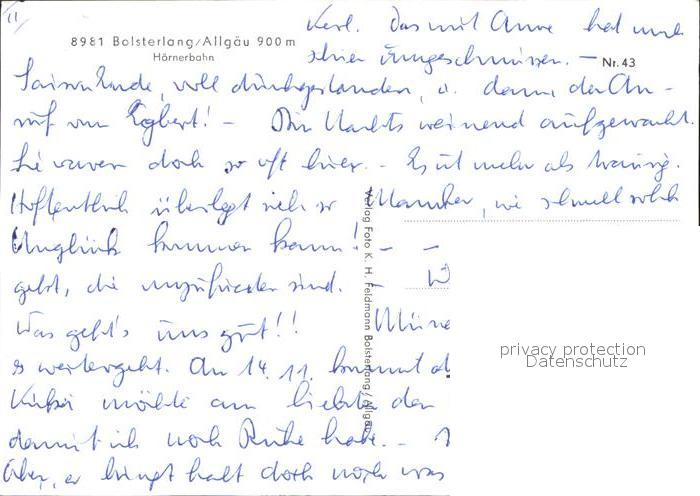 11
Kerl. Das mit Anne hat mich
8981 Bolsterlang/Allgäu 900 m
schier umgeschmissen. –
Hörnerbahn
Nr. 43
Saisonende, voll durchgestanden, u. dann der An-
ruf von Egbert! – Bin Nachts weinend aufgewacht.
Sie waren doch so oft hier. – Es ist mehr als traurig.
Hoffentlich überlegt sich so Mancher, wie schnell solch
Unglück kommen kann! – –
geht, die unzufrieden sind. –
Was geht's uns gut!!
es weitergeht. Am 14.11. kommt
möchte am liebsten den
damit ich noch Ruhe habe. –
Aber, er bringt halt doch noch was
Verlag Foto K. H. Feldmann Bolsterlang / Allgäu
privacy protection
Datenschutz